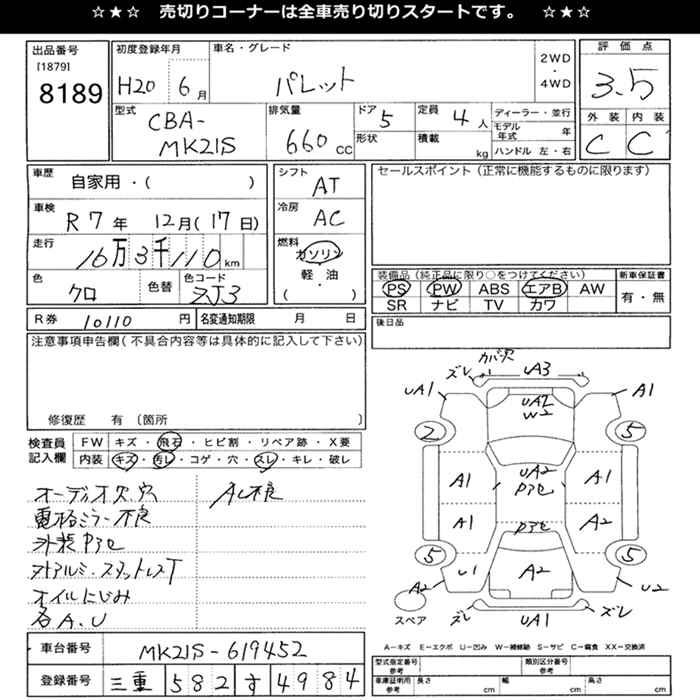 ☆★☆ 売切りコーナーは全車売り切りスタートです。 ☆★☆
出品番号
[1879]
8189
初度登録年月
H20 6月
車名・グレード
パレット
2WD
・
4WD
評価点
3.5
外装 内装
C C
型式
CBA-
MK21S
排気量
660 CC
ドア
5
形状
定員
4人
積載
kg
ディーラー・並行
モデル年式 年
ハンドル 左・右
車歴
自家用・( )
車検
R7年 12月(17日)
走行
16万3千110km
色
クロ
色替
色コード
ZJ3
シフト
AT
冷房
AC
燃料
ガソリン
軽・油
( )
セールスポイント(正常に機能するものに限ります)
装備品(純正品に限り○をつけてください)
PS PW ABS エアB AW
SR ナビ TV カワ
新車保証書
有・無
R券 10110円
名変通知期限 月 日
後日品
注意事項申告欄(不具合内容等は具体的に記入して下さい)
修復歴 有 〔箇所 〕
検査員記入欄
FW キズ・飛石・ヒビ割・リペア跡・X要
内装 キズ・汚レ・コゲ・穴・スレ・キレ・破レ
オーディオ欠.穴
電格ミラー不良
外装Pアセ
社外アルミ・スタットレスT
オイルにじみ
各A.U
AC不良
カバ欠
ズレ UA3 ズレ
UA1 A1
UA2
W2
2 5
UA2
Pアセ
A1 A1
A1 A2
Pアセ
5 5
A2 U1 A2 U2
スペア
ズレ UA1 ズレ
A-キズ E-エクボ U-凹み W-補修跡 S-サビ C-腐食 XX-交換済
車台番号
MK21S-619452
登録番号
三重 582 す 4984
型式指定番号
参考
類別区分番号
参考
車庫証明用
参考
長さ cm
幅 cm
高さ cm